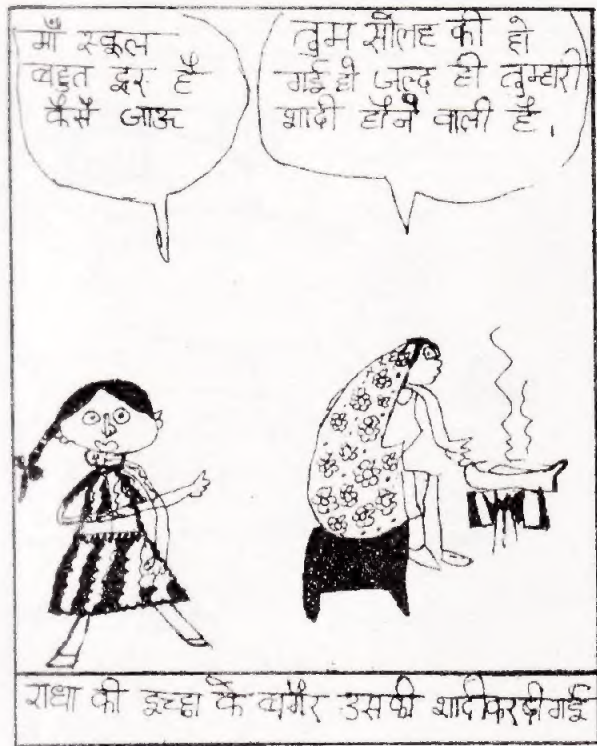 माँ स्कूल
बहुत दूर है
कैसे जाऊ
तुम सोलह की हो
गई हो जल्द ही तुम्हारी
शादी होने वाली है.
राधा की इच्छा के बगैर उसकी शादी कर दी गई